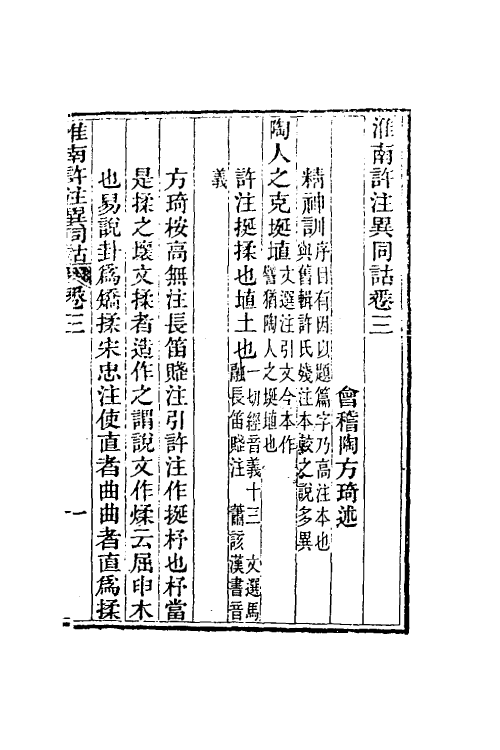 淮南許注異同詁卷三
會稽陶方琦述
精神訓序目有因以題篇字乃高注本也與舊輯許氏殘注本較之說多異
陶人之克挻埴文選注引文今本作譬猶陶人之挻埴也
許注挻揉也埴土也一切經音義十三 文選馬融長笛賦注 蕭該漢書音
義
方琦桉高無注長笛賦注引許注作挻抒也抒當
是揉之壞文揉者造作之謂說文作煣云屈申木
也易說卦為矯揉宋忠注使直者曲曲者直為揉
淮南許注異同詁 卷三
一